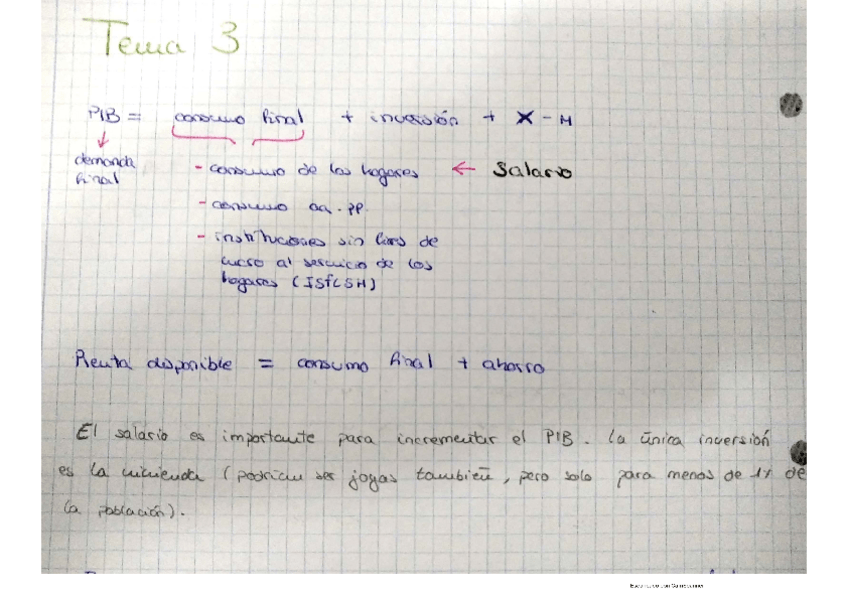 Tema 3
PIB = consumo final + inversión + X - M
demanda
final
- consumo de los hogares ← Salario
- consumo aa.pp.
- instituciones sin fines de
lucro al servicio de los
hogares (ISFLSH)
Renta disponible = consumo final + ahorro
El salario es importante para incrementar el PIB. La única inversión
es la vivienda (podrían ser joyas también, pero solo para menos de 1% de
la población).
Escaneado con CamScanner